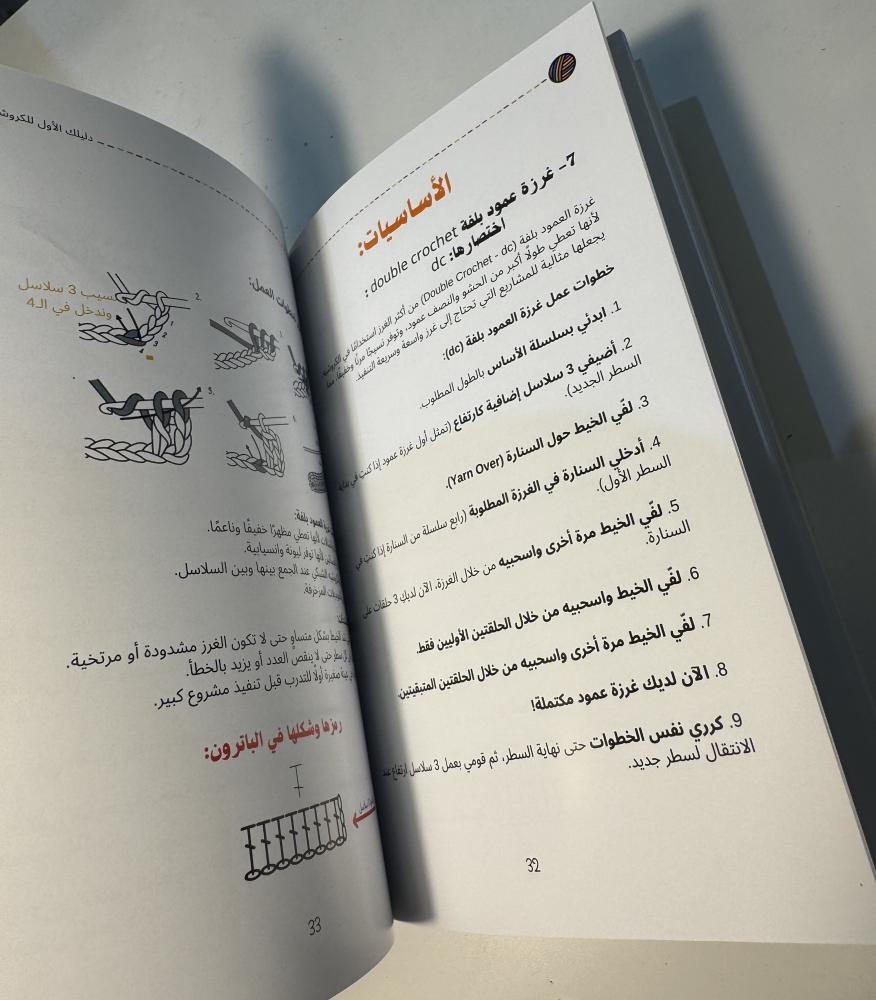 الأساسيات:
7- غرزة عمود بلفة double crochet :
اختصارها: dc
غرزة العمود بلفة (Double Crochet - dc) من أكثر الغرز استخدامًا في الكروشيه
لأنها تعطي طولًا أكبر من الحشو والنصف عمود، وتوفر نسيجًا مرنًا وخفيفًا، مما
يجعلها مثالية للمشاريع التي تحتاج إلى غرز واسعة وسريعة التنفيذ.
خطوات عمل غرزة العمود بلفة (dc):
1. ابدئي بسلسلة الأساس بالطول المطلوب.
2. أضيفي 3 سلاسل إضافية كارتفاع (تمثل أول غرزة عمود إذا كنتِ في بداية
السطر الجديد).
3. لفّي الخيط حول السنارة (Yarn Over).
4. أدخلي السنارة في الغرزة المطلوبة (رابع سلسلة من السنارة إذا كنتِ في
السطر الأول).
5. لفّي الخيط مرة أخرى واسحبيه من خلال الغرزة، الآن لديكِ 3 حلقات على
السنارة.
6. لفّي الخيط واسحبيه من خلال الحلقتين الأوليين فقط.
7. لفّي الخيط مرة أخرى واسحبيه من خلال الحلقتين المتبقيتين.
8. الآن لديك غرزة عمود مكتملة!
9. كرري نفس الخطوات حتى نهاية السطر، ثم قومي بعمل 3 سلاسل ارتفاع عند
الانتقال لسطر جديد.
32
دليلك الأول للكروش
خطوات العمل:
2.
نسيب 3 سلاسل
وندخل في الـ4
1
2
3
4
5.
العمود بلفة:
لأنها تعطي مظهرًا خفيفًا وناعمًا.
لأنها توفر ليونة وانسيابية.
الشبكي عند الجمع بينها وبين السلاسل.
المزخرفة.
الخيط بشكل متساوٍ حتى لا تكون الغرز مشدودة أو مرتخية.
كل سطر حتى لا ينقص العدد أو يزيد بالخطأ.
عينة صغيرة أولًا للتدرب قبل تنفيذ مشروع كبير.
رمزها وشكلها في الباترون:
33